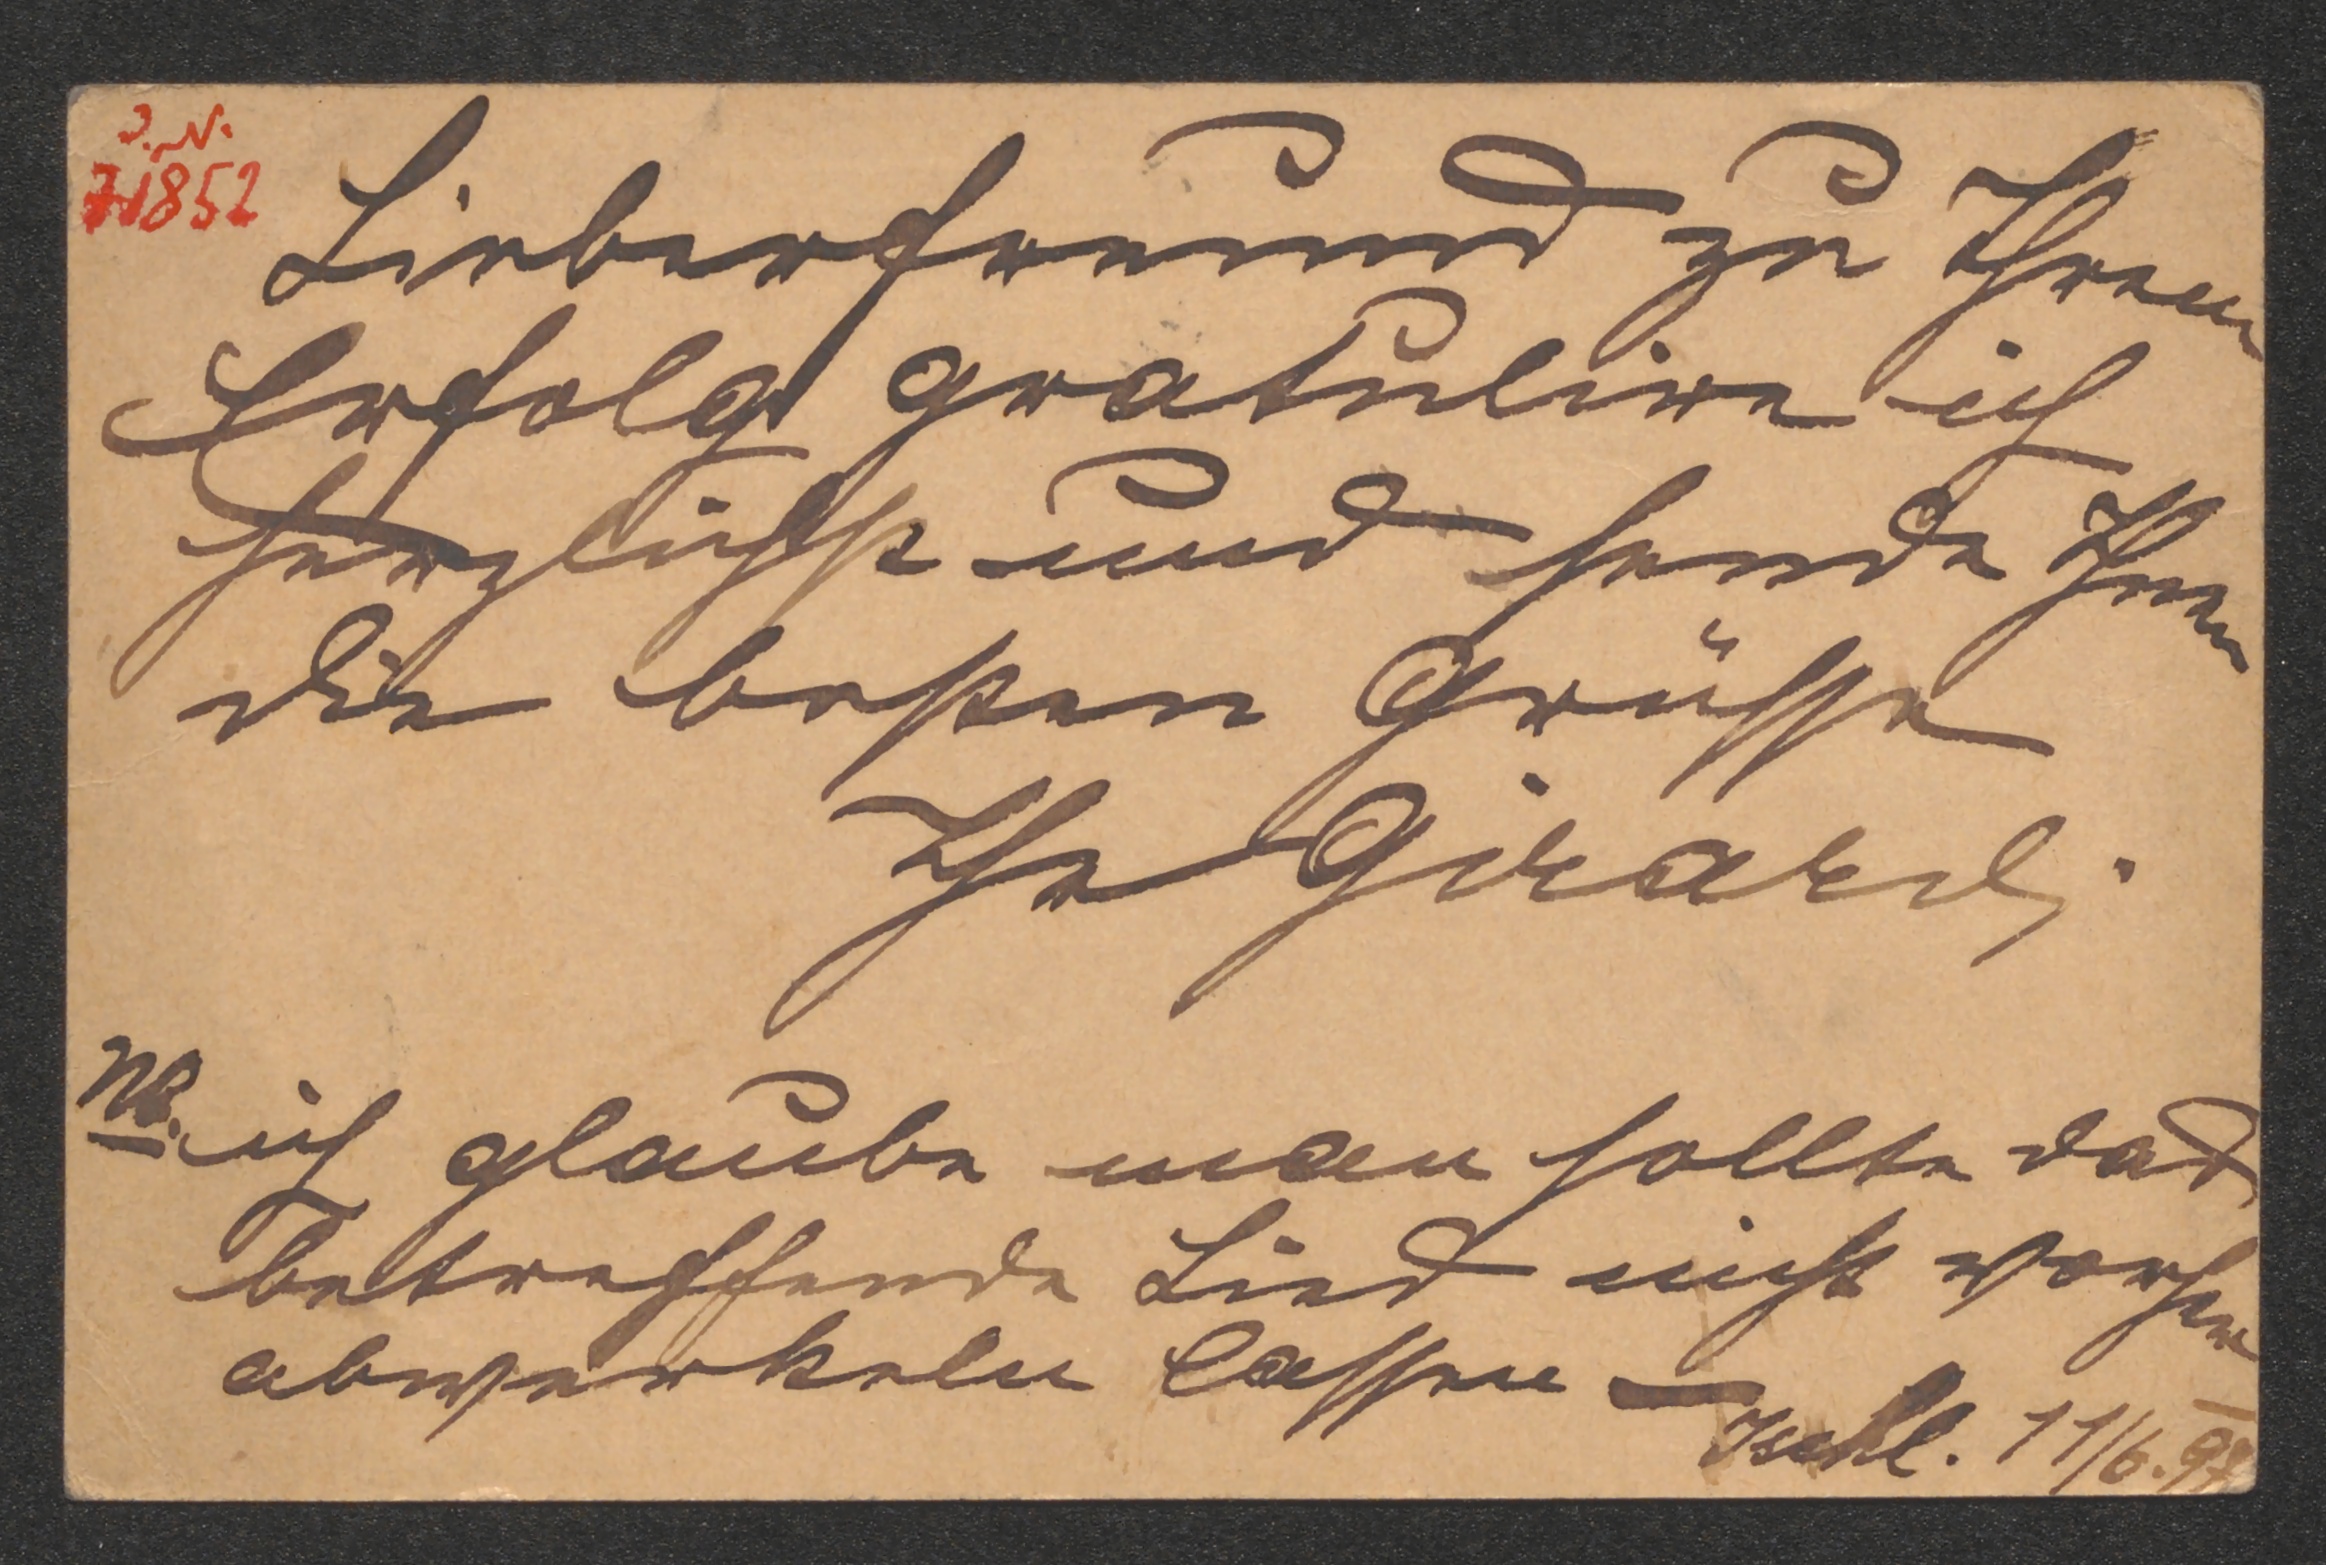 J. N.
71852
Lieber Freund zu Ihrem
Erfolg gratulire ich
herzlichst und sende Ihnen
die besten Grüsse
Ihr Girardi
NB. ich glaube man sollte das
betreffende Lied nicht vorher
abwerkeln lassen —
Ischl. 11/6. 97